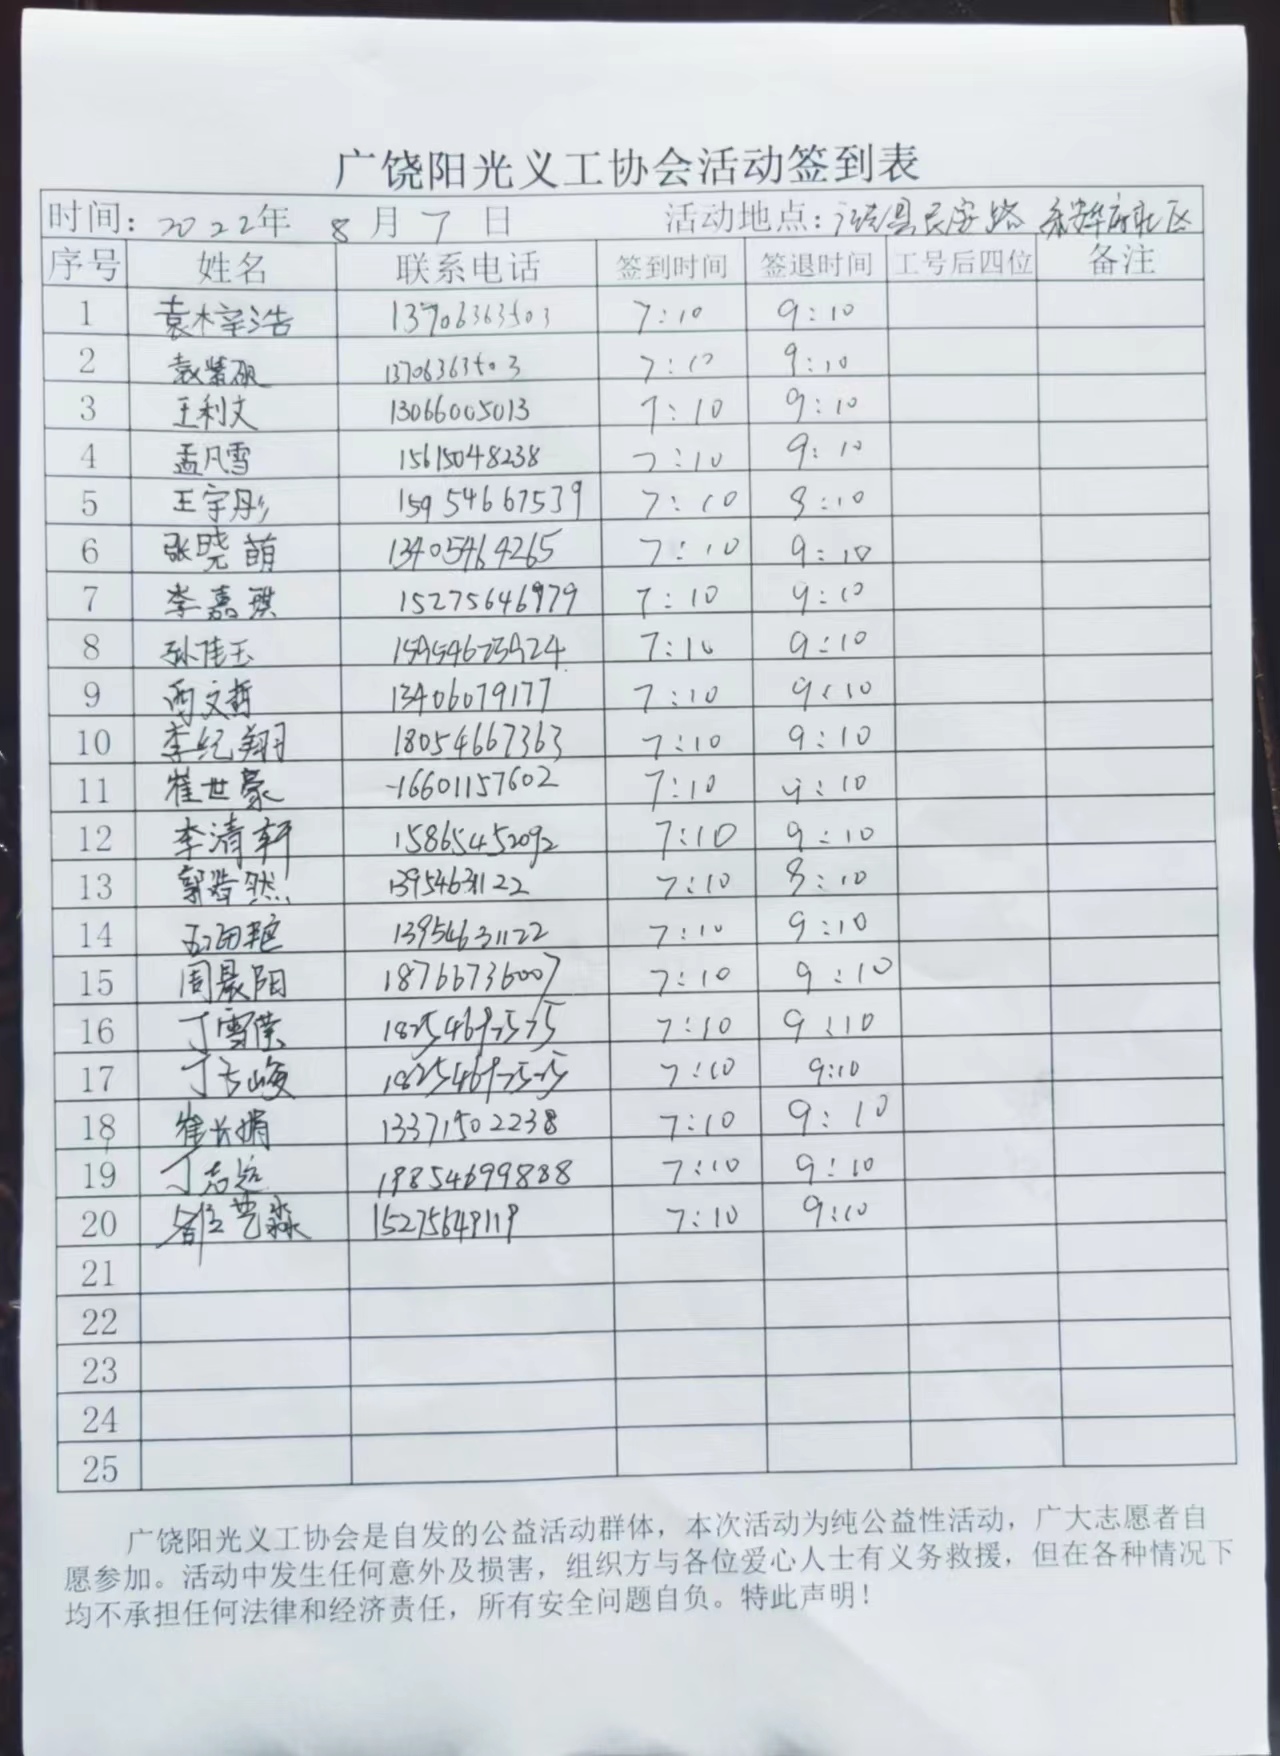 广饶阳光义工协会活动签到表
时间：2022年 8 月 7 日 活动地点：县民安路 社区
序号 姓名 联系电话 签到时间 签退时间 工号后四位 备注
1 袁梓浩 13706363503 7:10 9:10
2 袁紫砚 13706363503 7:10 9:10
3 王利文 13066005013 7:10 9:10
4 孟凡雪 15615048238 7:10 9:10
5 王宇彤 15954667539 7:10 9:10
6 张晓萌 13405464265 7:10 9:10
7 李嘉琪 15275646979 7:10 9:10
8 孙佳玉 7:10 9:10
9 文哲 13406079177 7:10 9:10
10 李纪翔 18054667363 7:10 9:10
11 崔世豪 16601157602 7:10 9:10
12 李清轩 15865452092 7:10 9:10
13 郭浩然 13954631122 7:10 9:10
14 13954631122 7:10 9:10
15 周晨阳 18766736007 7:10 9:10
16 丁雪 7:10 9:10
17 丁长峻 7:10 9:10
18 崔长娟 13371502238 7:10 9:10
19 丁志远 19854699888 7:10 9:10
20 艺淼 15275649119 7:10 9:10
21
22
23
24
25
广饶阳光义工协会是自发的公益活动群体，本次活动为纯公益性活动，广大志愿者自
愿参加。活动中发生任何意外及损害，组织方与各位爱心人士有义务救援，但在各种情况下
均不承担任何法律和经济责任，所有安全问题自负。特此声明！